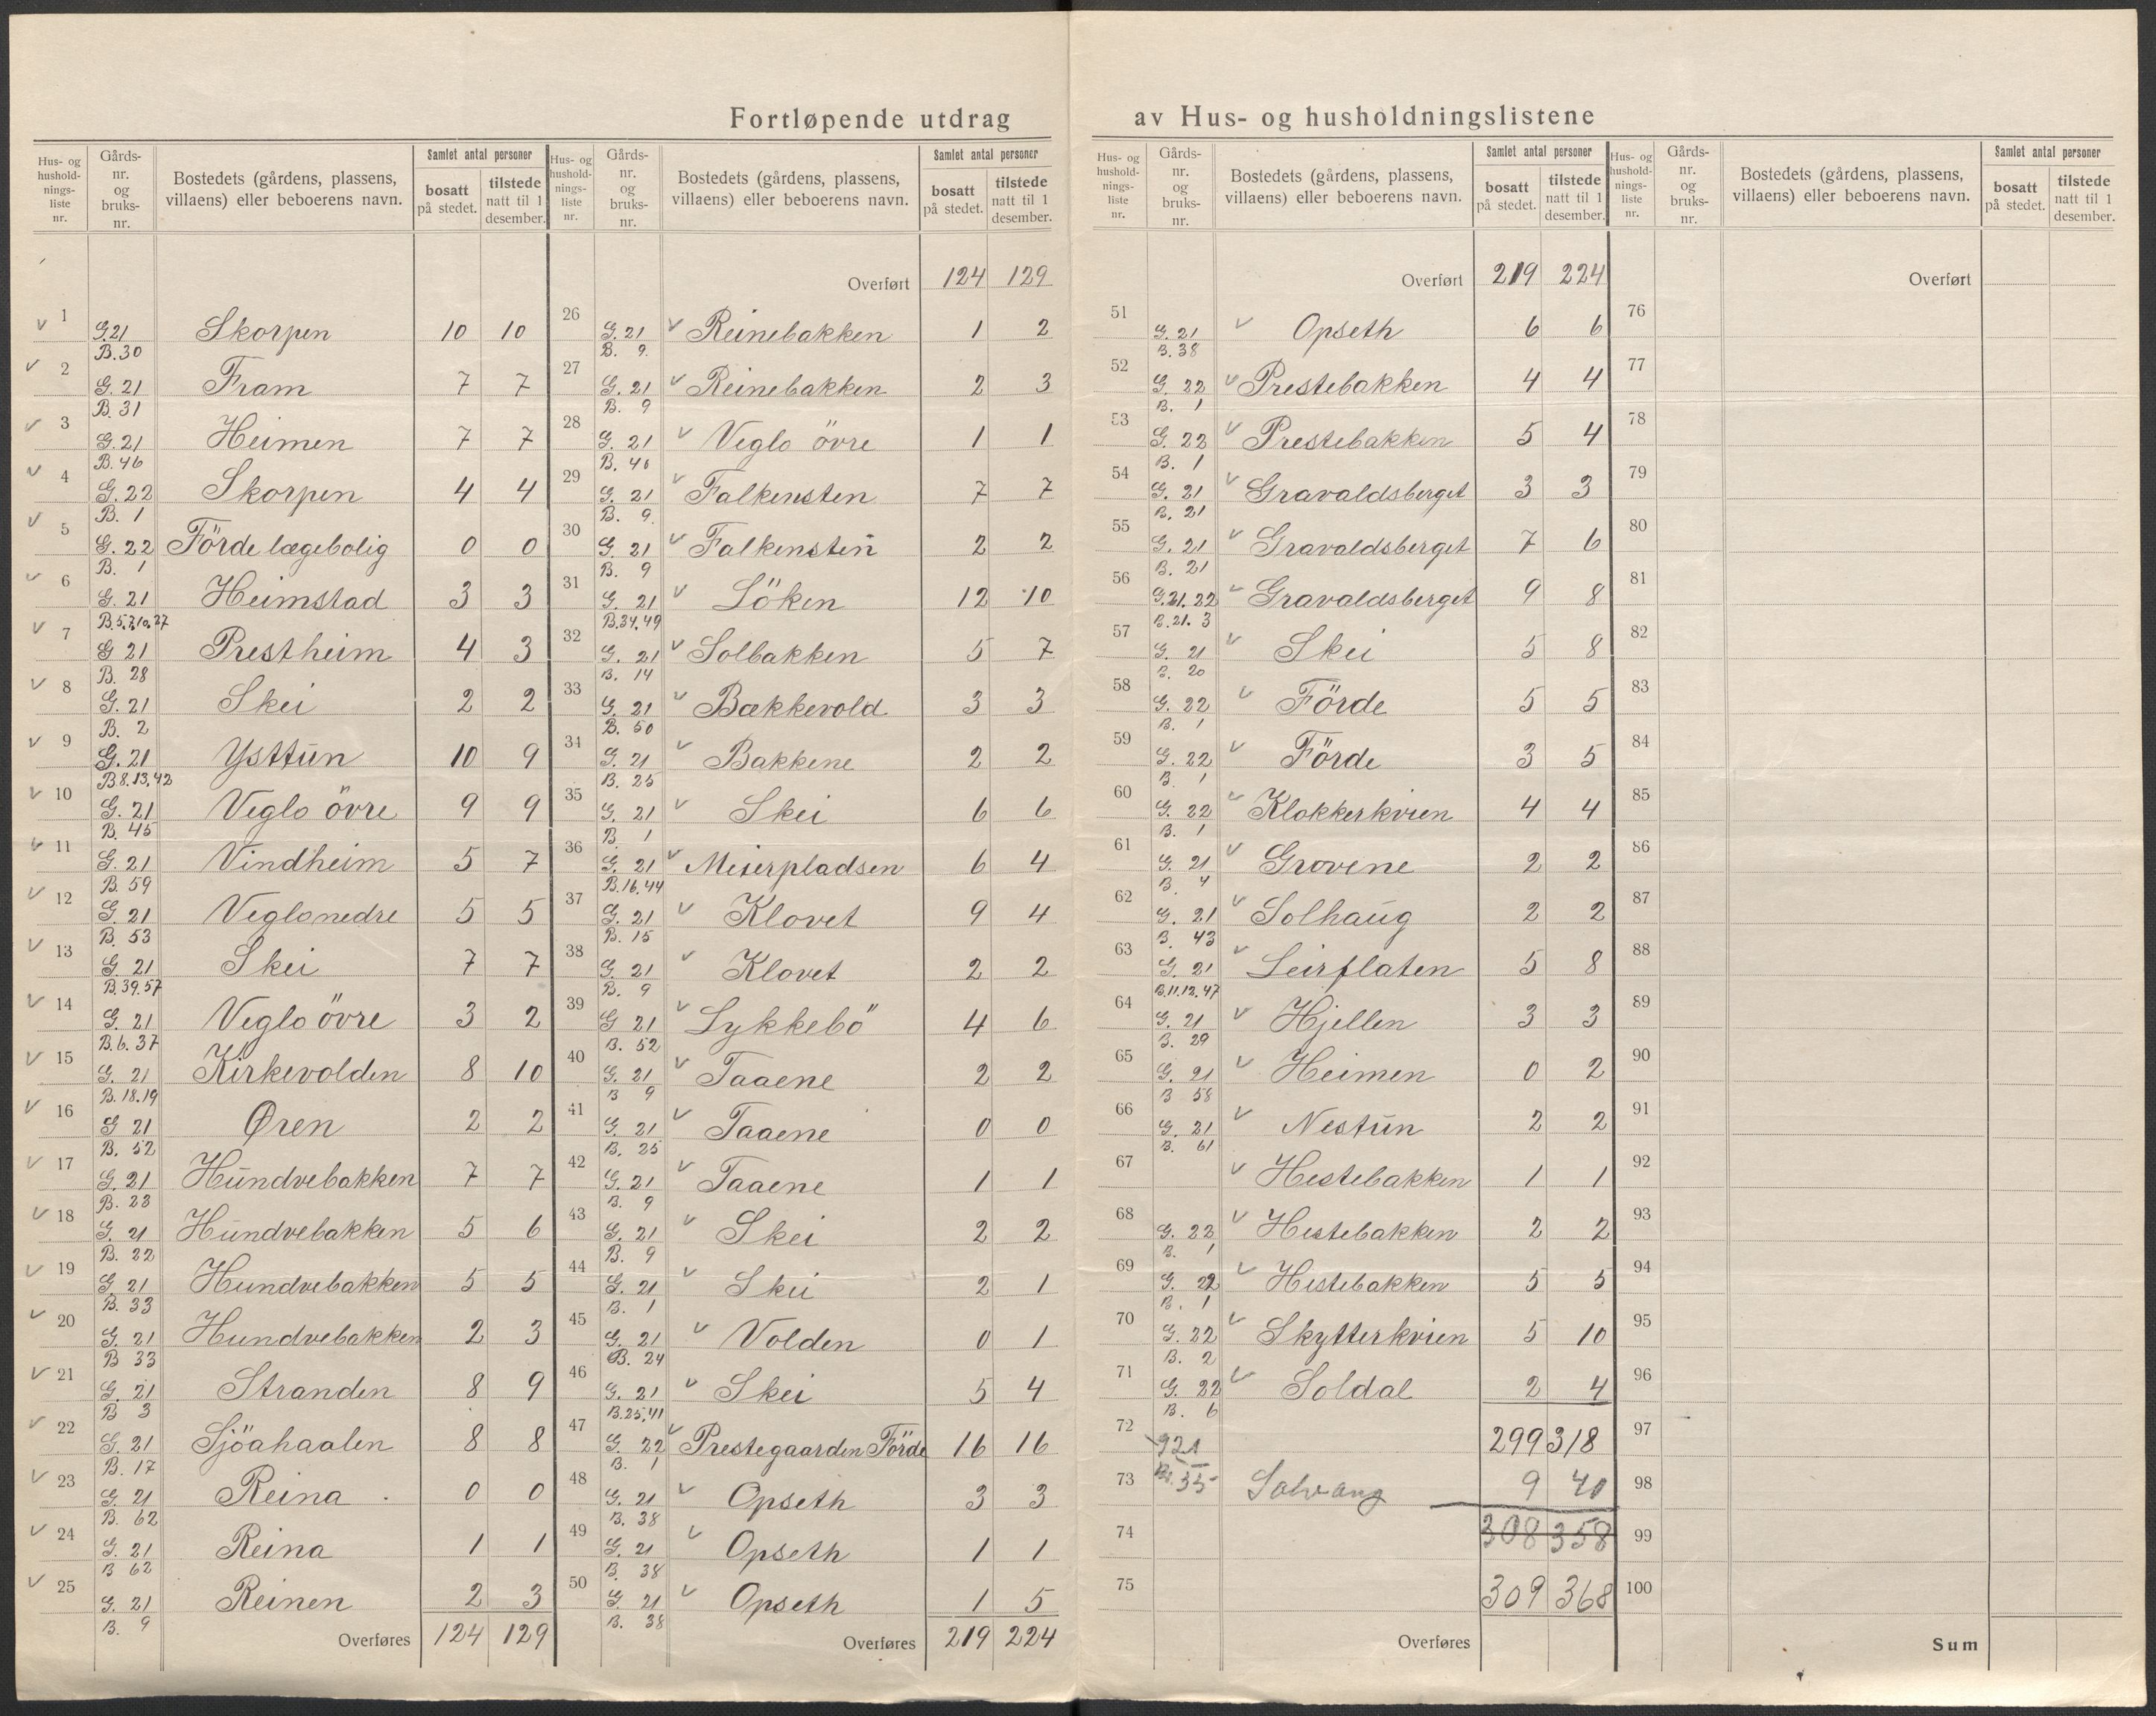 Fortløpende utdrag av Hus- og husholdningslistene
Hus- og husholdningsliste nr. | Gårds- nr. og bruks- nr. | Bostedets (gårdens, plassens, villaens) eller beboerens navn. | Samlet antal personer | bosatt på stedet. | tilstede natt til 1 desember.
1 G. 21 B. 30 Skorpen 10 10
2 G. 21 B. 31 Fram 7 7
3 G. 21 B. 46 Heimen 7 7
4 G. 22 B. 1 Skorpen 4 4
5 G. 22 B. 1 Förde lægebolig 0 0
6 G. 21 B. 5.7.10.27 Heimstad 3 3
7 G 21 B. 28 Prestheim 4 3
8 G. 21 B. 2 Skei 2 2
9 G. 21 B. 8.13.42 Ysttun 10 9
10 G. 21 B. 45 Veglo övre 9 9
11 G. 21 B. 59 Vindheim 5 7
12 G. 21 B. 53 Veglo nedre 5 5
13 G. 21 B. 39.57 Skei 7 7
14 G. 21 B. 6. 37 Veglo övre 3 2
15 G. 21 B. 18.19 Kirkevolden 8 10
16 G 21 B. 52 Øren 2 2
17 G. 21 B. 23 Hundvebakken 7 7
18 G. 21 B. 22 Hundvebakken 5 6
19 G. 21 B. 33 Hundvebakken 5 5
20 G. 21 B 33 Hundvebakken 2 3
21 G. 21 B 3 Stranden 8 9
22 G. 21 B. 17 Sjöahaalen 8 8
23 G. 21 B. 62 Reina 0 0
24 G. 21 B 62 Reina 1 1
25 G. 21 B. 9 Reinen 2 3
Overføres 124 129
Hus- og husholdningsliste nr. | Gårds- nr. og bruks- nr. | Bostedets (gårdens, plassens, villaens) eller beboerens navn. | Samlet antal personer | bosatt på stedet. | tilstede natt til 1 desember.
Overført 124 129
26 G. 21 B. 9. Reinebakken 1 2
27 G. 21 B. 9 Reinebakken 2 3
28 G. 21 B. 46 Veglo övre 1 1
29 G. 21 B. 9. Falkensten 7 7
30 G. 21 B. 9 Falkensten 2 2
31 G. 21 B. 34.49 Löken 12 10
32 G. 21 B. 14 Solbakken 5 7
33 G. 21 B. 50 Bækkevold 3 3
34 G. 21 B. 25 Bakkene 2 2
35 G. 21 B. 1 Skei 6 6
36 G. 21 B. 16.44 Meierpladsen 6 4
37 G. 21 B. 15 Klovet 9 4
38 G. 21 B. 9 Klovet 2 2
39 G 21 B. 52 Lykkebö 4 6
40 G. 21 B 9 Taaene 2 2
41 G. 21 B. 25 Taaene 0 0
42 G. 21 B. 9 Taaene 1 1
43 G. 21 B. 9 Skei 2 2
44 G. 21 B. 1 Skei 2 1
45 G. 21 B. 24 Volden 0 1
46 G. 21 B. 25.41 Skei 5 4
47 G. 22 B. 1 Prestegaarden Förde 16 16
48 G. 21 B. 38 Opseth 3 3
49 G. 21 B. 38 Opseth 1 1
50 G. 21 B. 38 Opseth 1 5
Overføres 219 224
Hus- og husholdningsliste nr. | Gårds- nr. og bruks- nr. | Bostedets (gårdens, plassens, villaens) eller beboerens navn. | Samlet antal personer | bosatt på stedet. | tilstede natt til 1 desember.
Overført 219 224
51 G. 21 B. 38 Opseth 6 6
52 G. 22 B. 1 Prestebakken 4 4
53 G. 22 B. 1 Prestebakken 5 4
54 G. 21 B. 21 Gravaldsberget 3 3
55 G. 21 B. 21 Gravaldsberget 7 6
56 G. 21. 22 B. 21. 3 Gravaldsberget 9 8
57 G. 21 B. 20 Skei 5 8
58 G. 22 B. 1 Förde 5 5
59 G. 22 B. 1 Förde 3 5
60 G. 22 B. 1 Klokkerkvien 4 4
61 G. 21 B. 4 Grovene 2 2
62 G. 21 B. 43 Solhaug 2 2
63 G. 21 B. 11.12.47 Leirflaten 5 8
64 G. 21 B. 29 Hjellen 3 3
65 G. 21 B 58 Heimen 0 2
66 G. 21 B. 61 Nestun 2 2
67 Hestebakken 1 1
68 G. 22 B. 1 Hestebakken 2 2
69 G. 22 B. 1 Hestebakken 5 5
70 G. 22 B. 2 Skytterkvien 5 10
71 G. 22 B. 6 Soldal 2 4
72 299 318
73 G 21 Br. 35 Solvang 9 40
74 308 358
75 309 368
Overføres
Hus- og husholdningsliste nr. | Gårds- nr. og bruks- nr. | Bostedets (gårdens, plassens, villaens) eller beboerens navn. | Samlet antal personer | bosatt på stedet. | tilstede natt til 1 desember.
Overført
76
77
78
79
80
81
82
83
84
85
86
87
88
89
90
91
92
93
94
95
96
97
98
99
100
Sum